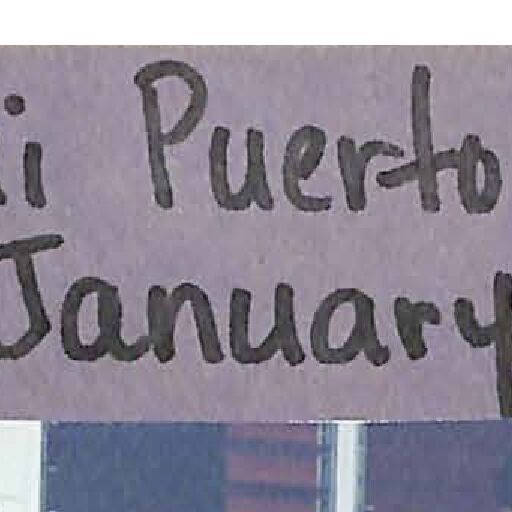 i Puerto
January